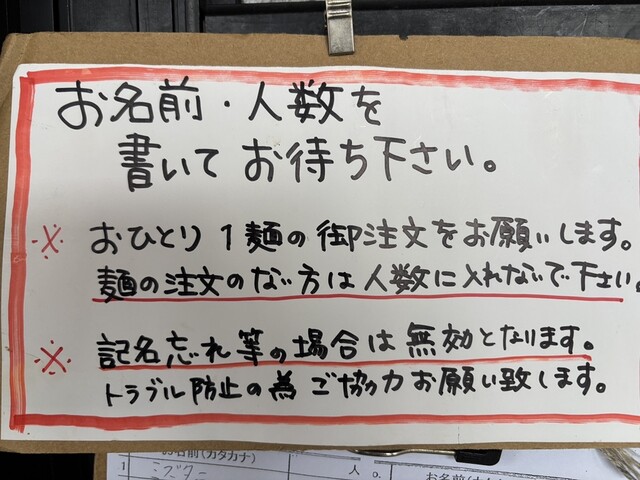 お名前・人数を
書いてお待ち下さい。
※ おひとり1麺の御注文をお願いします。
麺の注文のない方は人数に入れないで下さい。
※ 記名忘れ等の場合は無効となります。
トラブル防止の為ご協力お願い致します。
お名前(カタカナ)
人
1